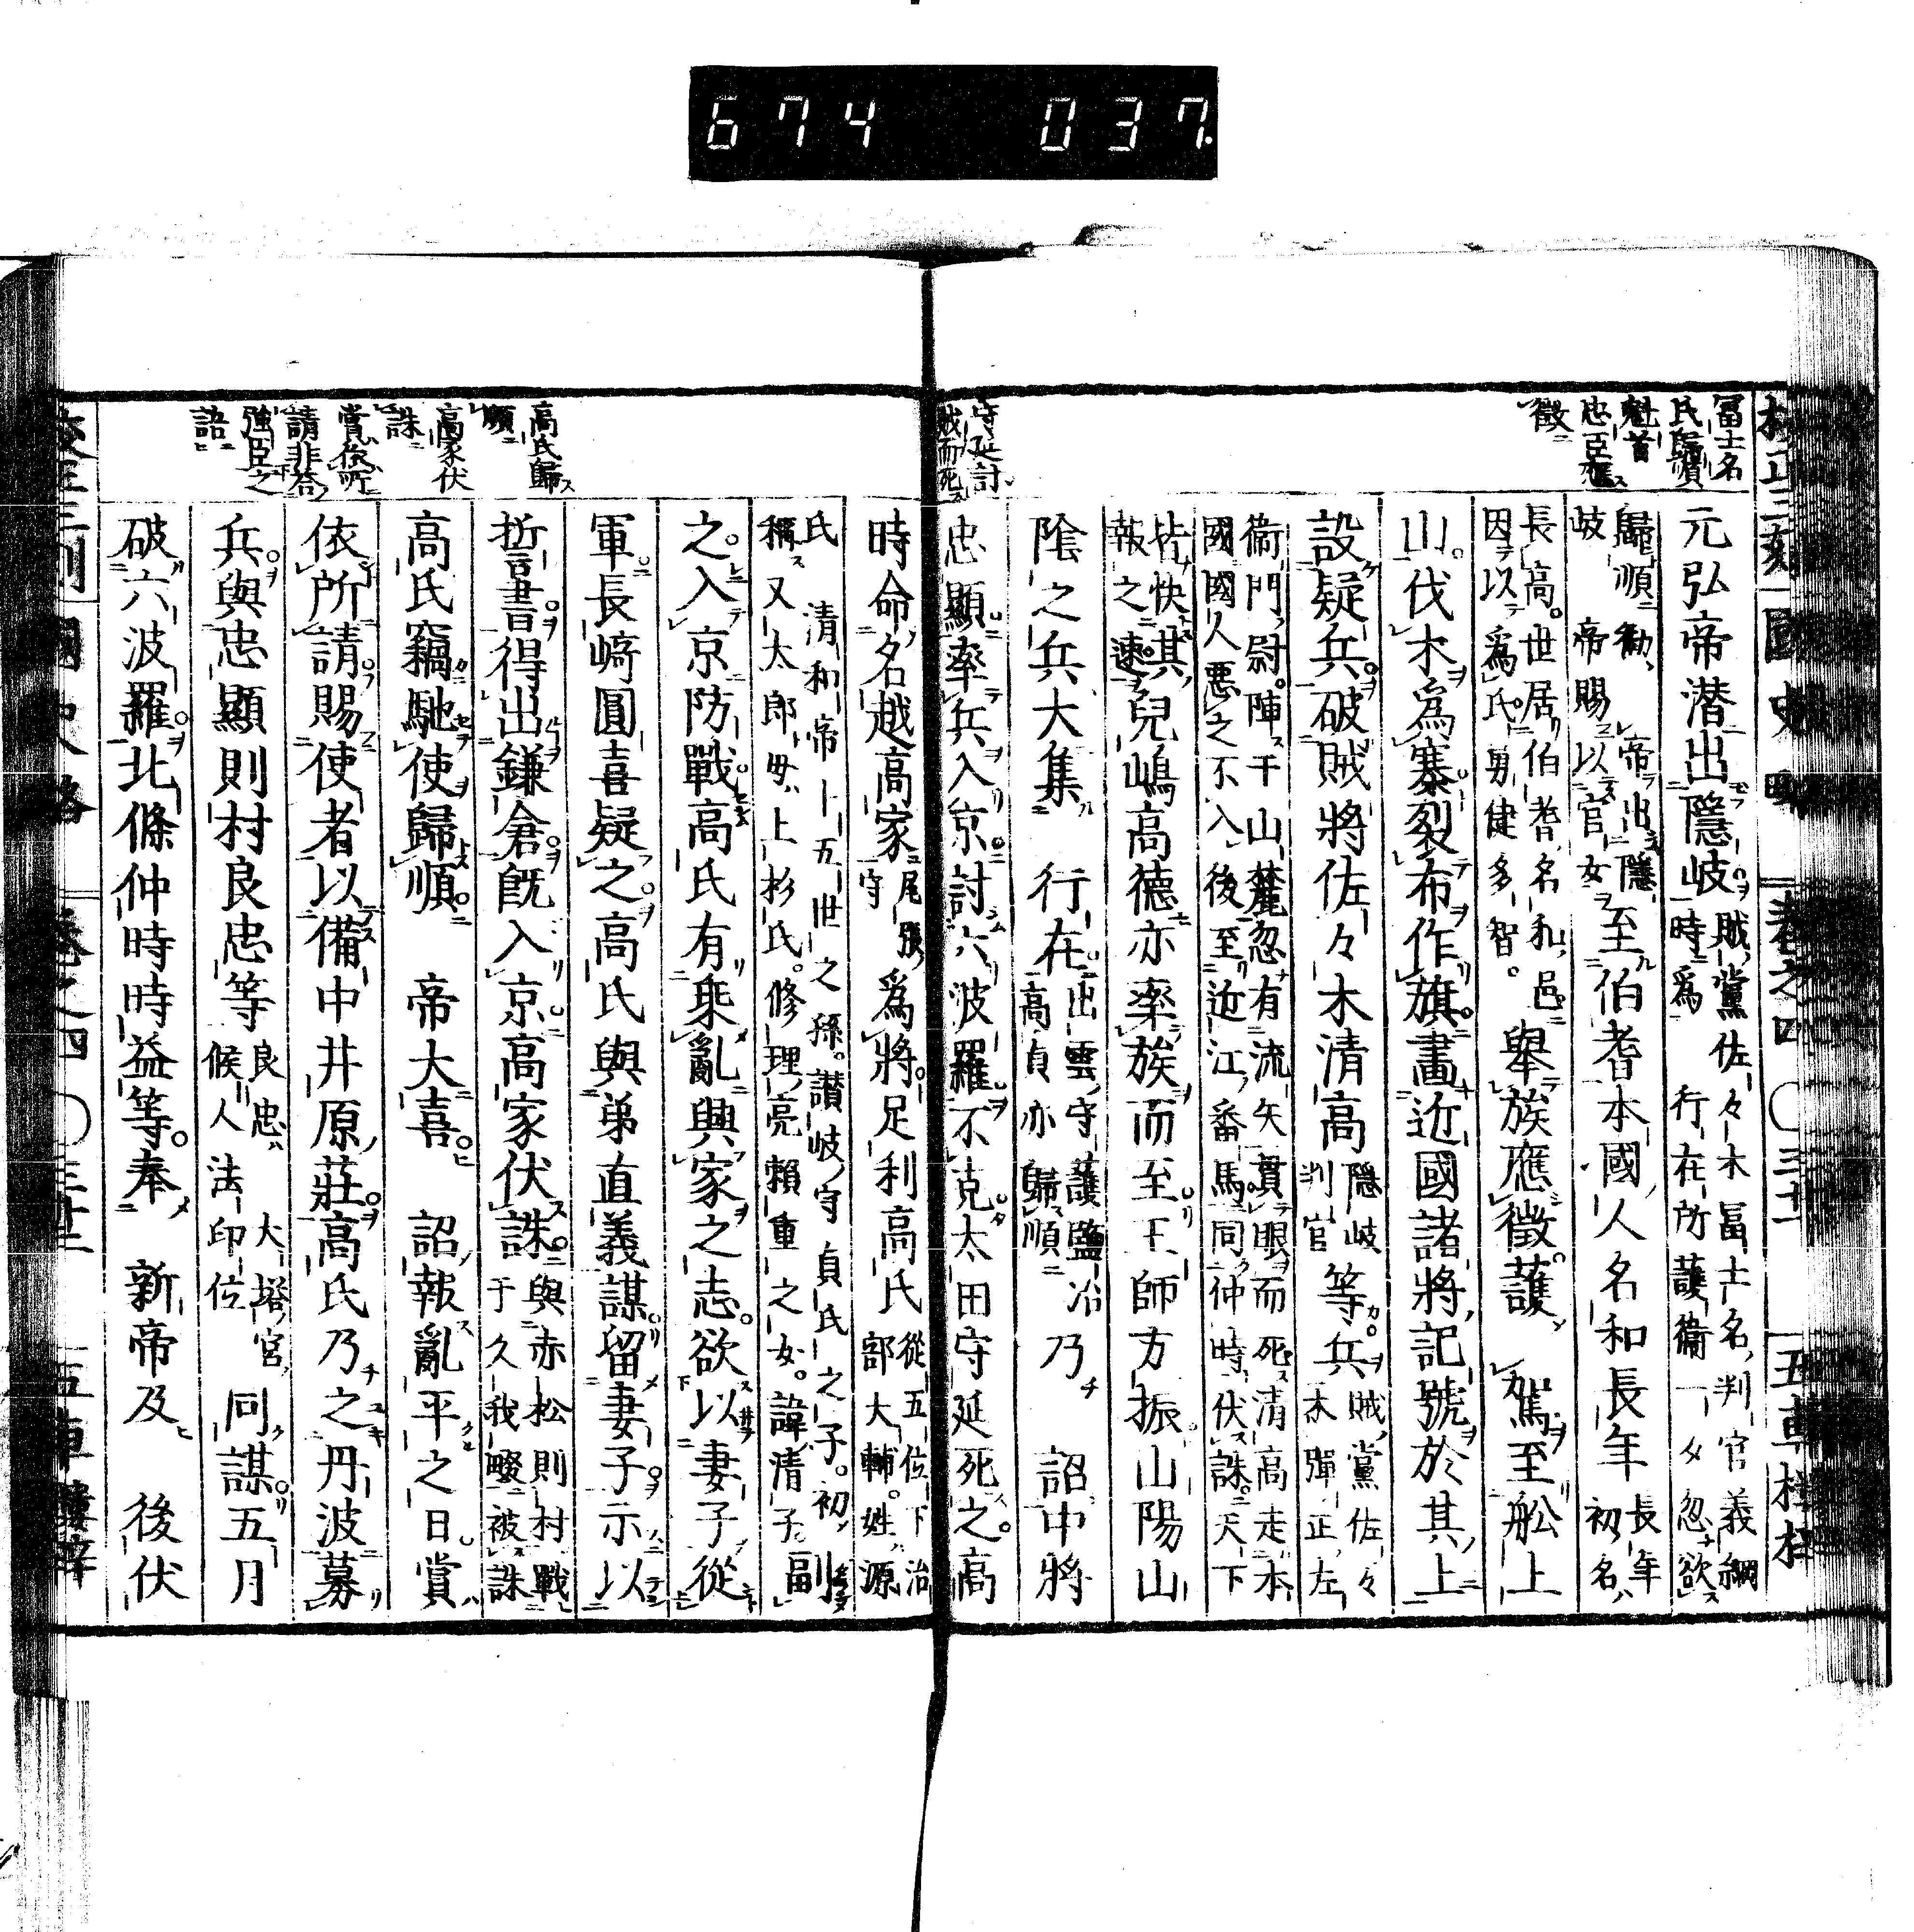 674 037
冨士名
氏歸順
魁首
忠臣應
徵
元弘帝潜出隱岐賊黨佐々木冨士名判官義綱
時爲 行在所護衞一夕忽欲
歸順勸 帝出隱
岐 帝賜以官女至伯耆本國人名和長年長年
初名
長高世居伯耆名和邑
因以爲氏勇健多智舉族應徵護 駕至舩上
山伐木爲寨裂布作旗畫近國諸將記號於其上
設疑兵破賊將佐々木清高隱岐
判官等兵賊黨佐々
木彈正左
衞門尉陣于山麓忽有流矢貫眼而死清高走本
國國人惡之不入後至近江番馬同仲時伏誅天下
皆快其
報之速兒嶋高德亦率族而至王師方振山陽山
陰之兵大集 行在出雲守護鹽冶
高貞亦歸順乃 詔中將
守延討
賊而死
忠顯率兵入京討六波羅不克太田守延死之高
時命名越高家尾張
守爲將足利高氏從五位下治
部大輔姓源
氏 清和帝十五世之孫讃岐守貞氏之子初
稱又太郎母上杉氏修理亮賴重之女諱清子副
之入京防戰高氏有乘亂興家之志欲以妻子從
軍長﨑圓喜疑之高氏與弟直義謀留妻子示以
高氏歸
順
高家伏
誅
賞依所
請非荅
強臣之
語
誓書得出鎌倉旣入京高家伏誅與赤松則村戰
于久我畷被誅
高氏竊馳使歸順 帝大喜 詔報亂平之日賞
依所請賜使者以備中井原莊高氏乃之丹波募
兵與忠顯則村良忠等良忠大塔宮
候人法印位同謀五月
破六波羅北條仲時時益等奉 新帝及 後伏